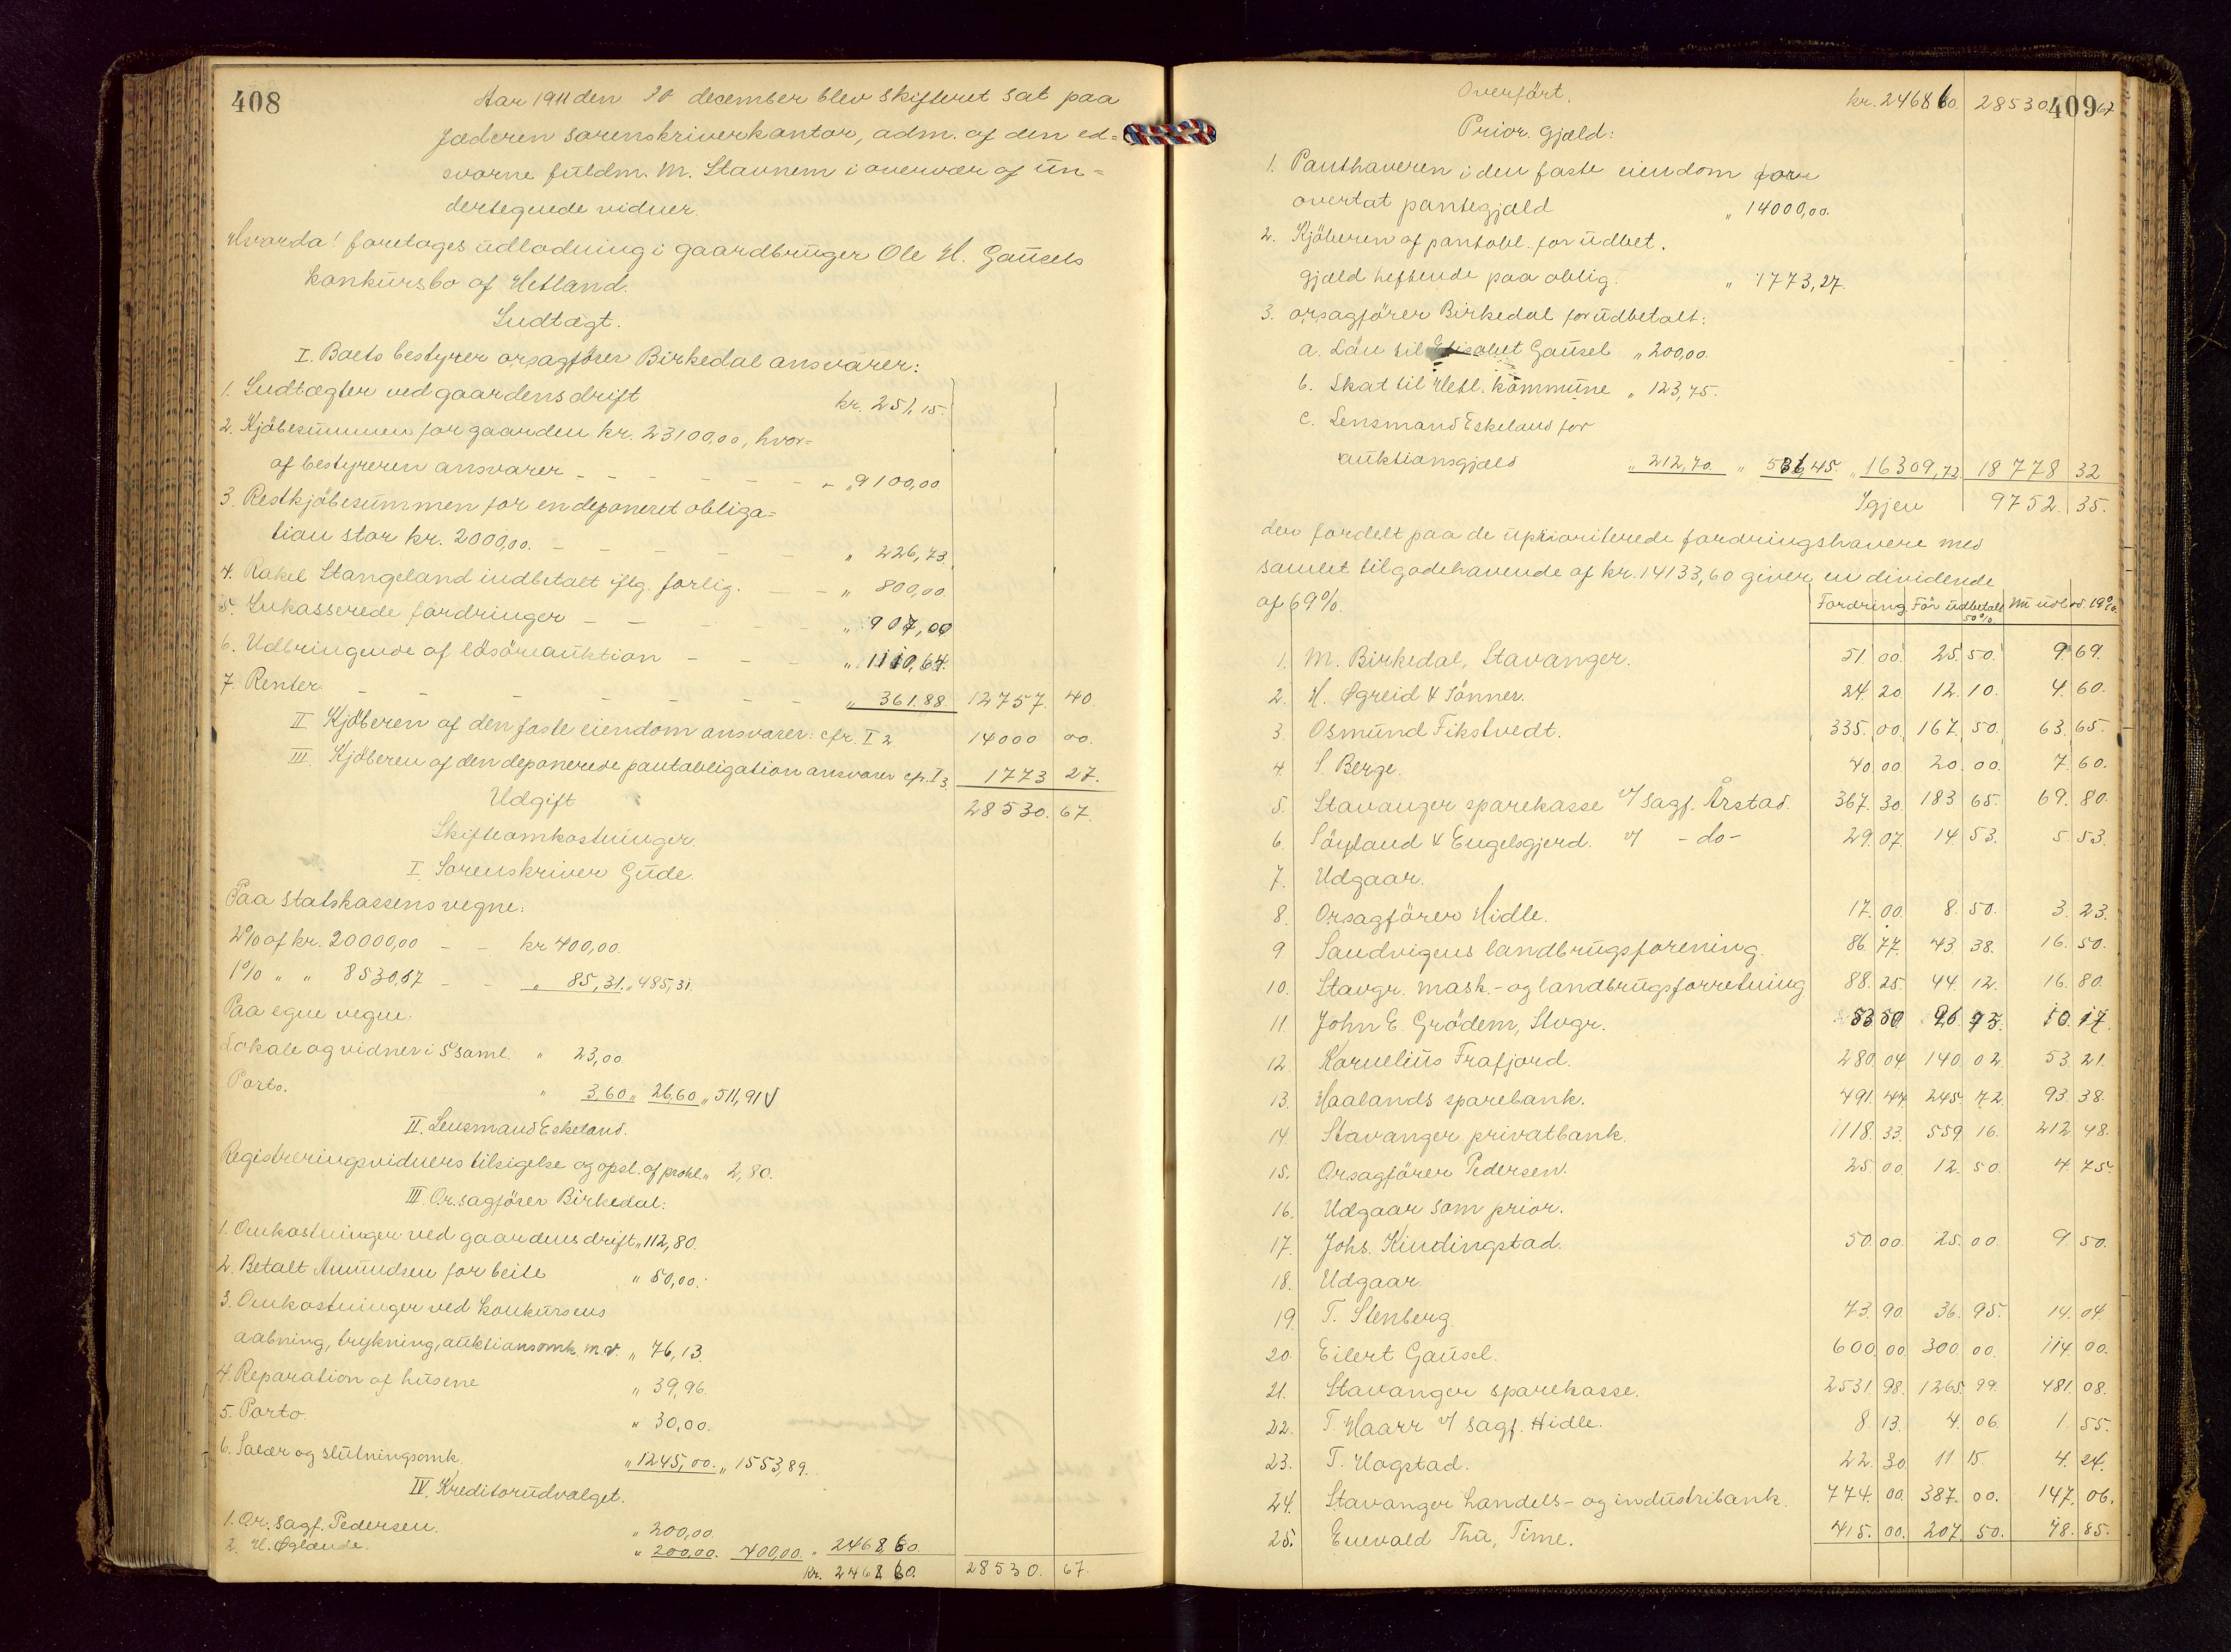 408
Aar 1911 den 20 december blev skifteret sat paa
Jæderen sorenskriverkontor, adm. af den ed=
svorne fuldm. M. Stavnem i overvær af un=
dertegnede vidner.
Hvorda! foretoges udlodning i gaardbruger Ole H. Gausels
konkursbo af Hetland.
Indtægt.
I. Boets bestyrer o.r.sagfører Birkedal ansvarer:
1. Indtægter ved gaardens drift kr. 251,15.
2. Kjøbesummen for gaarden kr. 23100,00, hvor=
af bestyreren ansvarer - - - - - - - " 9100,00
3. Restkjøbesummen for en deponeret obliga=
tion stor kr. 2000,00. - - - - - - " 226,73
4. Rakel Stangeland indbetalt iflg. forlig. - - " 800,00
5. Inkasserede fordringer - - - - - " 907,00
6. Udbringende af løsøreauktion - - - " 1110,64.
7. Renter. - - - - - - - " 361.88. 12757. 40.
II Kjøberen af den faste eiendom ansvarer: cfr. I 2 14000 00.
III. Kjøberen af den deponerede pantobligation ansvarer cfr. I 3. 1773 27.
Udgift 28530. 67.
Skifteomkostninger.
I. Sorenskriver Gude.
Paa statskassens vegne:
2% af kr. 20000,00 - - kr 400,00.
1% " " 8530,67 - - " 85,31. " 485,31.
Paa egne vegne:
Lokale og vidner i 5 saml. " 23,00
Porto. " 3,60 " 26,60 " 511,91 V
II. Lensmand Eskeland.
Registreringsvidners tilsigelse og opsl. af prokl. " 2,80.
III. O.r.sagfører Birkedal:
1. Omkostninger ved gaardens drift " 112,80.
2. Betalt Amundsen for beite " 50,00.
3. Omkostninger ved konkursens
aabning, trykning, auktionsomk. m.v. " 76,13.
4. Reparation af husene " 39,96.
5. Porto. " 30,00.
6. Salær og slutningsomk. " 1245,00. " 1553,89.
IV. Kreditorudvalget.
1. O.r.sagf. Pedersen. " 200,00.
2. H. Øglænde. " 200,00. 400,00. " 2468 60.
kr. 2468 60. 28530. 67.
409
Overført. kr. 2468 60. 28530 67
Prior. Gjæld:
1. Panthaveren i den faste eiendom for
overtat pantegjæld " 14000,00.
2. Kjøberen af pantobl. for udbet.
gjæld heftende paa oblig. " 1773,27.
3. o.r.sagfører Birkedal for udbetalt:
a. Lån til Elisabet Gausel " 200,00.
b. Skat til Hetl. kommune " 123,75.
c. Lensmand Eskeland for
auktionsgjæld " 212,70. " 536,45. " 16309,72 18778 32
Igjen 9752. 35.
der fordelt paa de uprioriterede fordringshavere med
samlet tilgodehavende af kr. 14133,60 giver en dividende
af 69%. Fordring. Før udbetalt 50% Nu udbet. 19%.
1. M. Birkedal, Stavanger. 51. 00. 25. 50. 9. 69.
2. H. Øgreid & Sønner. 24. 20 12. 10. 4. 60.
3. Osmund Fikstvedt. 335. 00. 167. 50. 63. 65.
4. S. Berge. 40. 00. 20. 00. 7. 60.
5. Stavanger sparekasse v/ sagf. Årstad. 367. 30. 183 65. 69. 80.
6. Søyland & Engelsgjerd. v/ -do- 29. 07. 14 53. 5. 53.
7. Udgaar.
8. O.r.sagfører Hidle. 17. 00. 8. 50. 3. 23.
9. Sandvigens landbrugsforening. 86. 77. 43. 38. 16. 50.
10. Stavgr. mask.- og landbrugsforretning 88. 25. 44. 12. 16. 80.
11. John E. Grødem, Stvgr. 53 50 26 75. 10. 17.
12. Kornelius Frafjord. 280. 04. 140. 02. 53. 21.
13. Haalands sparebank. 491. 44. 245. 72. 93. 38.
14. Stavanger privatbank. 1118. 33. 559 16. 212. 48.
15. O.r.sagfører Pedersen. 25. 00. 12. 50. 4. 75.
16. Udgaar som prior.
17. Johs. Kindingstad. 50. 00. 25. 00. 9. 50.
18. Udgaar.
19. T. Stenberg. 73. 90. 36. 95. 14. 04.
20. Eilert Gausel. 600. 00. 300. 00. 114. 00.
21. Stavanger sparekasse. 2531. 98. 1265. 99. 481. 08.
22. T. Haarr v/ sagf. Hidle. 8. 13. 4. 06. 1. 55.
23. T. Hogstad. 22. 30. 11 15. 4. 24.
24. Stavanger handels- og industribank. 774. 00. 387. 00. 147. 06.
25. Enevald Thu, Time. 415. 00. 207. 50. 78. 85.